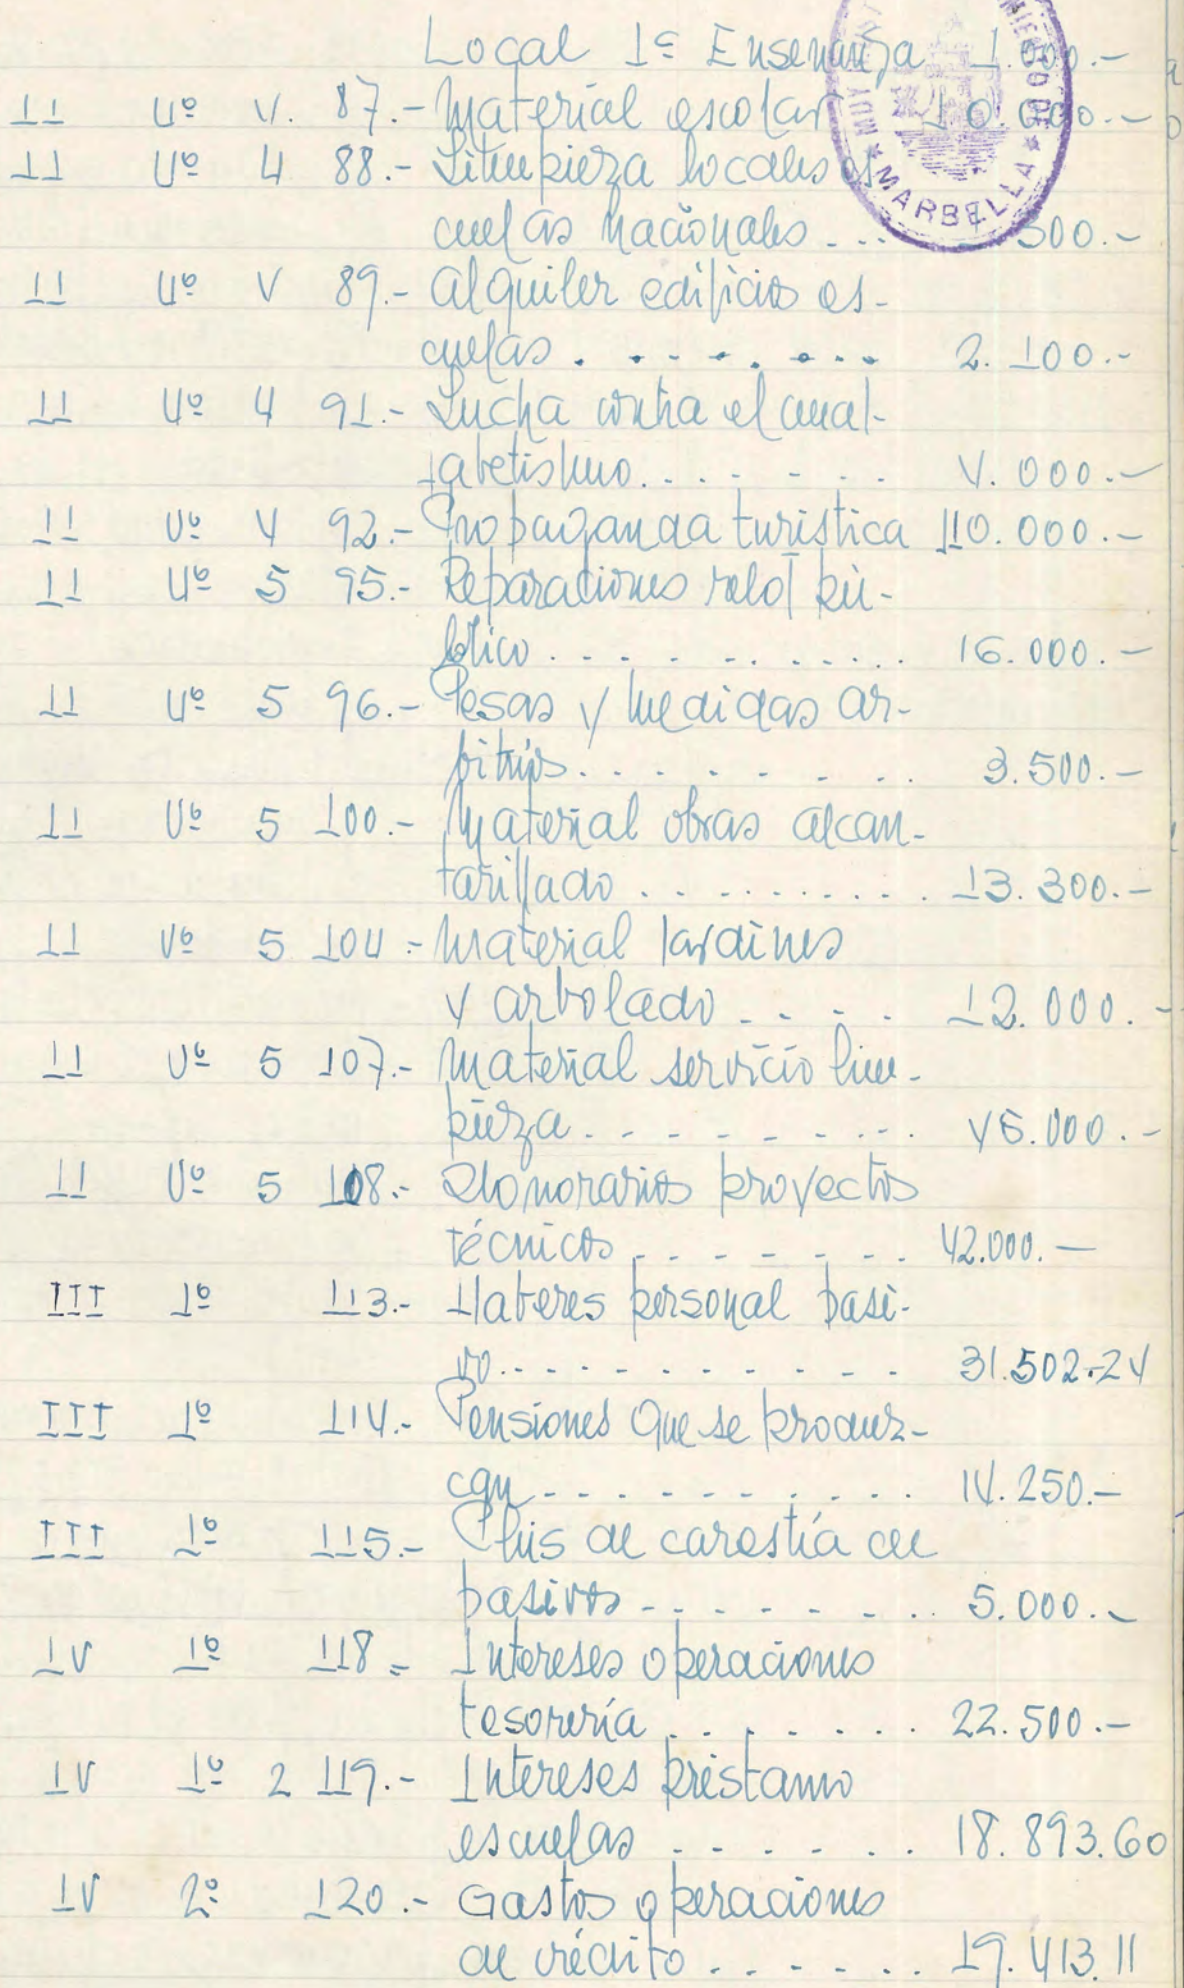 Local 1ª Enseñanza 1.000.-
II 4º 4. 87.- Material escolar 10.000.-
II 4º 4 88.- Limpieza locales es
cuelas nacionales .... 500.-
II 4º 4 89.- Alquiler edificios es-
cuelas . . . . . . . . 2.100.-
II 4º 4 91.- Lucha contra el anal-
fabetismo. . . . . . . 4.000.-
II 4º 4 92.- Propaganda turística 110.000.-
II 4º 5 95.- Reparaciones reloj pú-
blico . . . . . . . . . . 16.000.-
II 4º 5 96.- Pesas y medidas ar-
bitrios. . . . . . . . 3.500.-
II 4º 5 100.- Material obras alcan-
tarillado . . . . . . . . . . 13.300.-
II 4º 5 104.- Material jardines
y arbolado . . . . 12.000.-
II 4º 5 107.- Material servicio lim-
pieza. . . . . . . . . . 45.000.-
II 4º 5 108.- Honorarios proyectos
técnicos . . . . . . . 42.000.-
III 1º 113.- Haberes personal pasi-
vo. . . . . . . . . . . . 31.502.24
III 1º 114.- Pensiones que se produz-
can . . . . . . . . . . . 14.250.-
III 1º 115.- Plus de carestía de
pasivos . . . . . . . . 5.000.-
IV 1º 118.- Intereses operaciones
tesorería . . . . . . . . 22.500.-
IV 1º 2 119.- Intereses préstamo
escuelas . . . . . . . 18.893.60
IV 2º 120.- Gastos operaciones
de crédito . . . . . . 19.413.11
MUY
MARBELLA